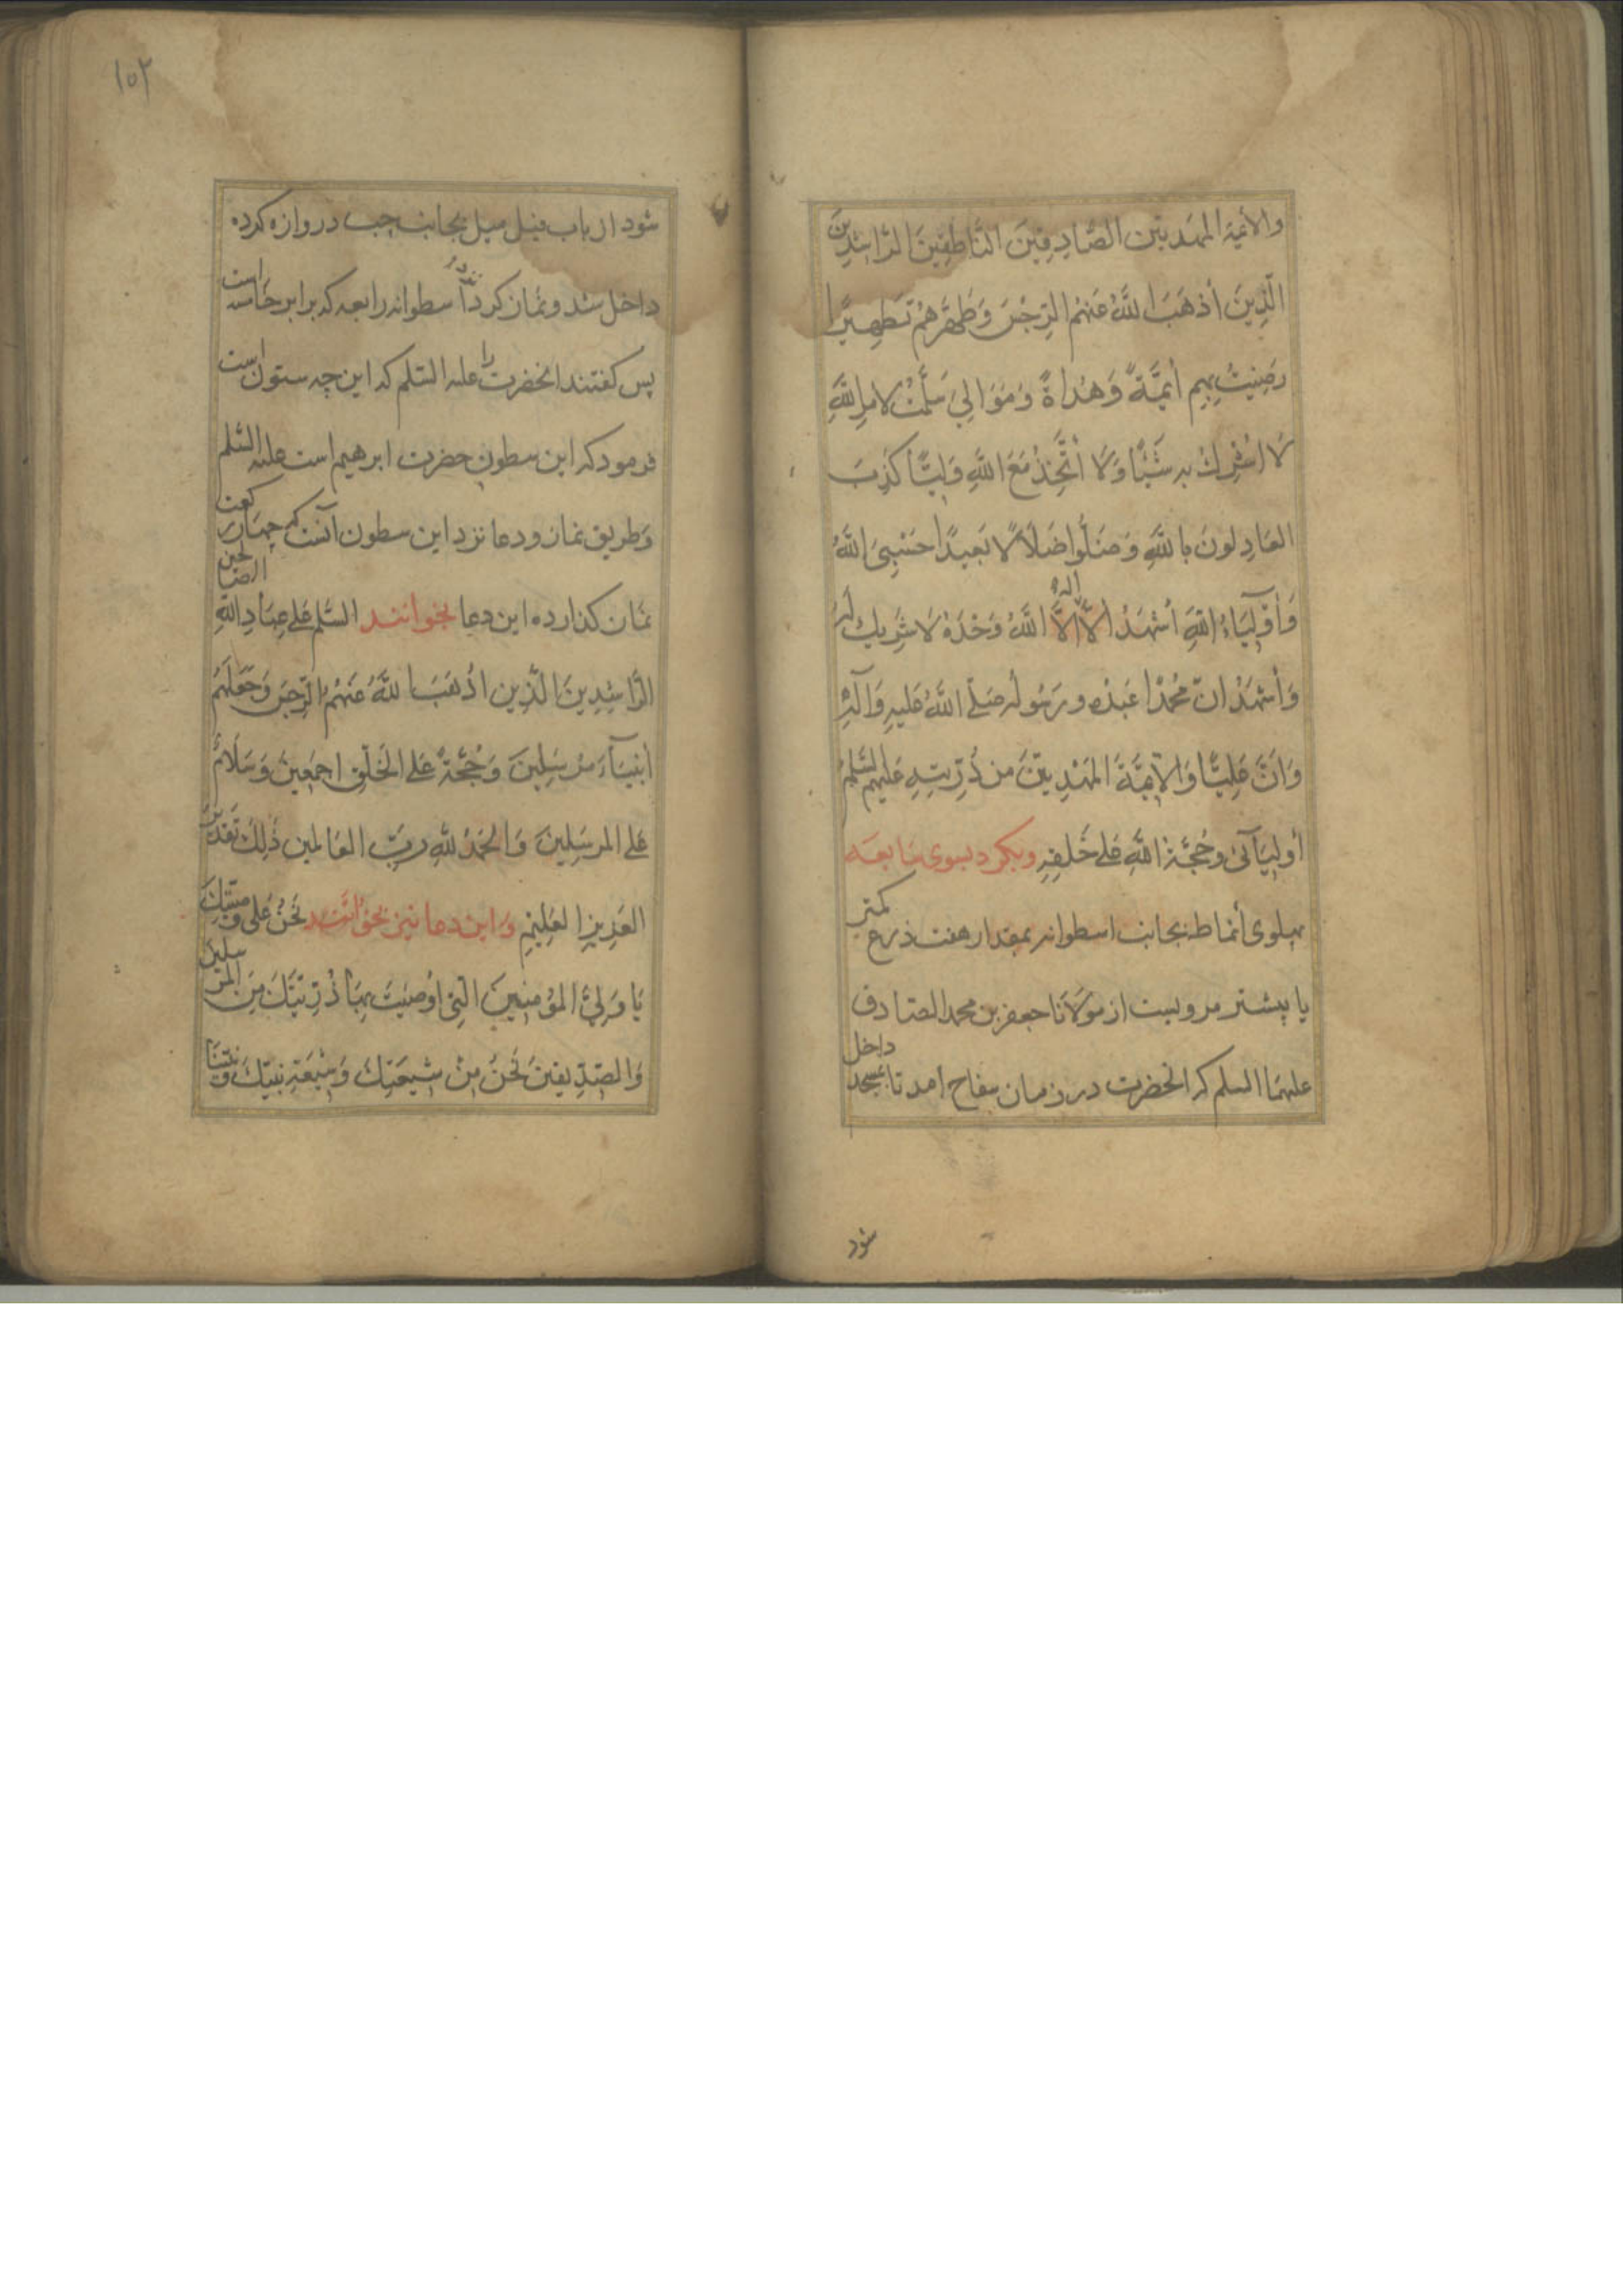 والأئمة المهديين الصَّادِقِينَ النَّاطِقِينَ الرَّاشِدِينَ
الَّذِينَ أَذْهَبَ اللَّهُ عَنْهُمُ الرِّجْسَ وَطَهَّرَهُمْ تَطْهِيرًا
رَضِيتُ بِهِم أَئِمَّةً وَهُدَاةً وَمَوَالِيَ سَلَّمْتُ لِأَمْرِ اللَّهِ
لَا اُشْرِكُ بِهِ شَيْئًا وَلَا أَتَّخِذُ مَعَ اللَّهِ وَلِيًّا كَذِبَ
العَادِلُونَ بِاللَّهِ وَضَلُّوا ضَلَالًا بَعِيدًا حَسْبِيَ اللَّهُ
وَأَوْلِيَاءُ اللَّهِ أَشْهَدُ أَلَّا إله إِلَّا اللَّهُ وَحْدَهُ لَا شَرِيكَ لَهُ
وَأَشْهَدُ انّ مُحَمَّدًا عَبْدُهُ وَرَسُولُه صَلَّى اللَّهُ عَلَيهِ وَآلِهِ
وَانَّ عَلِيًّا وَالأَئِمَّةَ المَهْدِيّينَ مِن ذُرِّيتِهِ عَلَيهِمُ السَّلم
أَوليَآئى وحُجَّة اللَّهِ عَلى خَلقِهِ وبكرد بسوى سابعه
پهلوى أنماط بجانب اسطوانه بمقدار هفت ذرع كمتر
يا بيشتر مرويست از مَوْلَانَا جعفر بن محمد الصادق
عليهما السلم كه انحضرت در زمان سفاح امد تا بمسجد داخل
شود
١٥٢
شود از باب فيل ميل بجانب چپ دروازه كرده
داخل شد ونماز كرد نزد اسطوانه رابعه كه برابر خامسه است
پس كفتند انحضرت را عليه السّلم كه اين چه ستون است
فرمود كه اين سطون حضرت ابرهيم است عليه السّلم
وطريق نماز ودعا نزد اين سطون آنست كه چهار ركعت
نماز كذارده اين دعا بخوانند السَّلم عَلى عِبَادِ اللَّهِ الصالحين
الرَّاشِدِينَ الَّذِين اذْهَبَ اللَّهُ عَنْهُم الرِّجسَ وَجَعَلَهُم
أَنبِيَآءَ مُرسَلِينَ وَحُجَّةً عَلى الخَلقِ اجمَعِينَ وَسَلَامٌ
عَلى المرسَلِينَ وَالحَمدُ لِلَّهِ رَبِّ العَالمين ذَلِكَ تَقدِيرُ
العَزِيزِ العَلِيمِ واين دعا نيز بخوانند نَحنُ عَلى وصيّتِكَ
يَا وَلِيَّ المُؤمِنِينَ الَّتِي اوصَيتَ بِهَا ذُرِّيَّتَكَ مِنَ المرسلين
وَالصِّدِّيقينَ نَحنُ مِن شِيعَتِكَ وَشِيعَةِ نَبِيّكَ ونبيّنَا